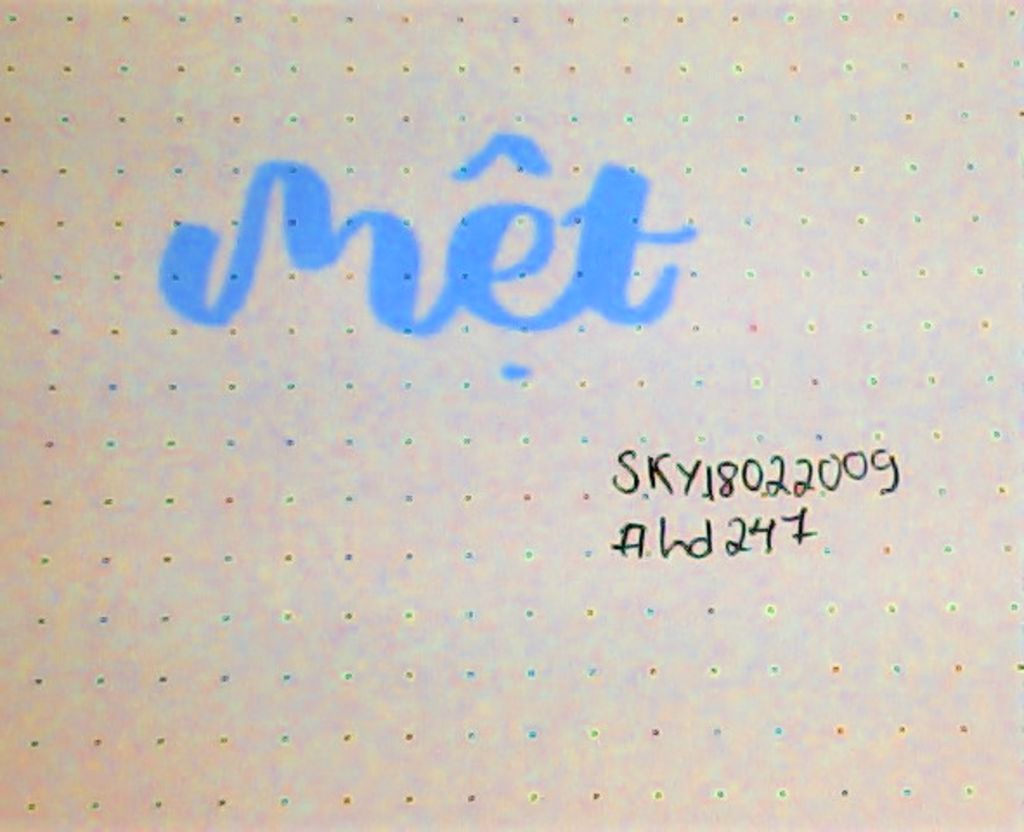 Mệt
SKY18022009
Ahd247